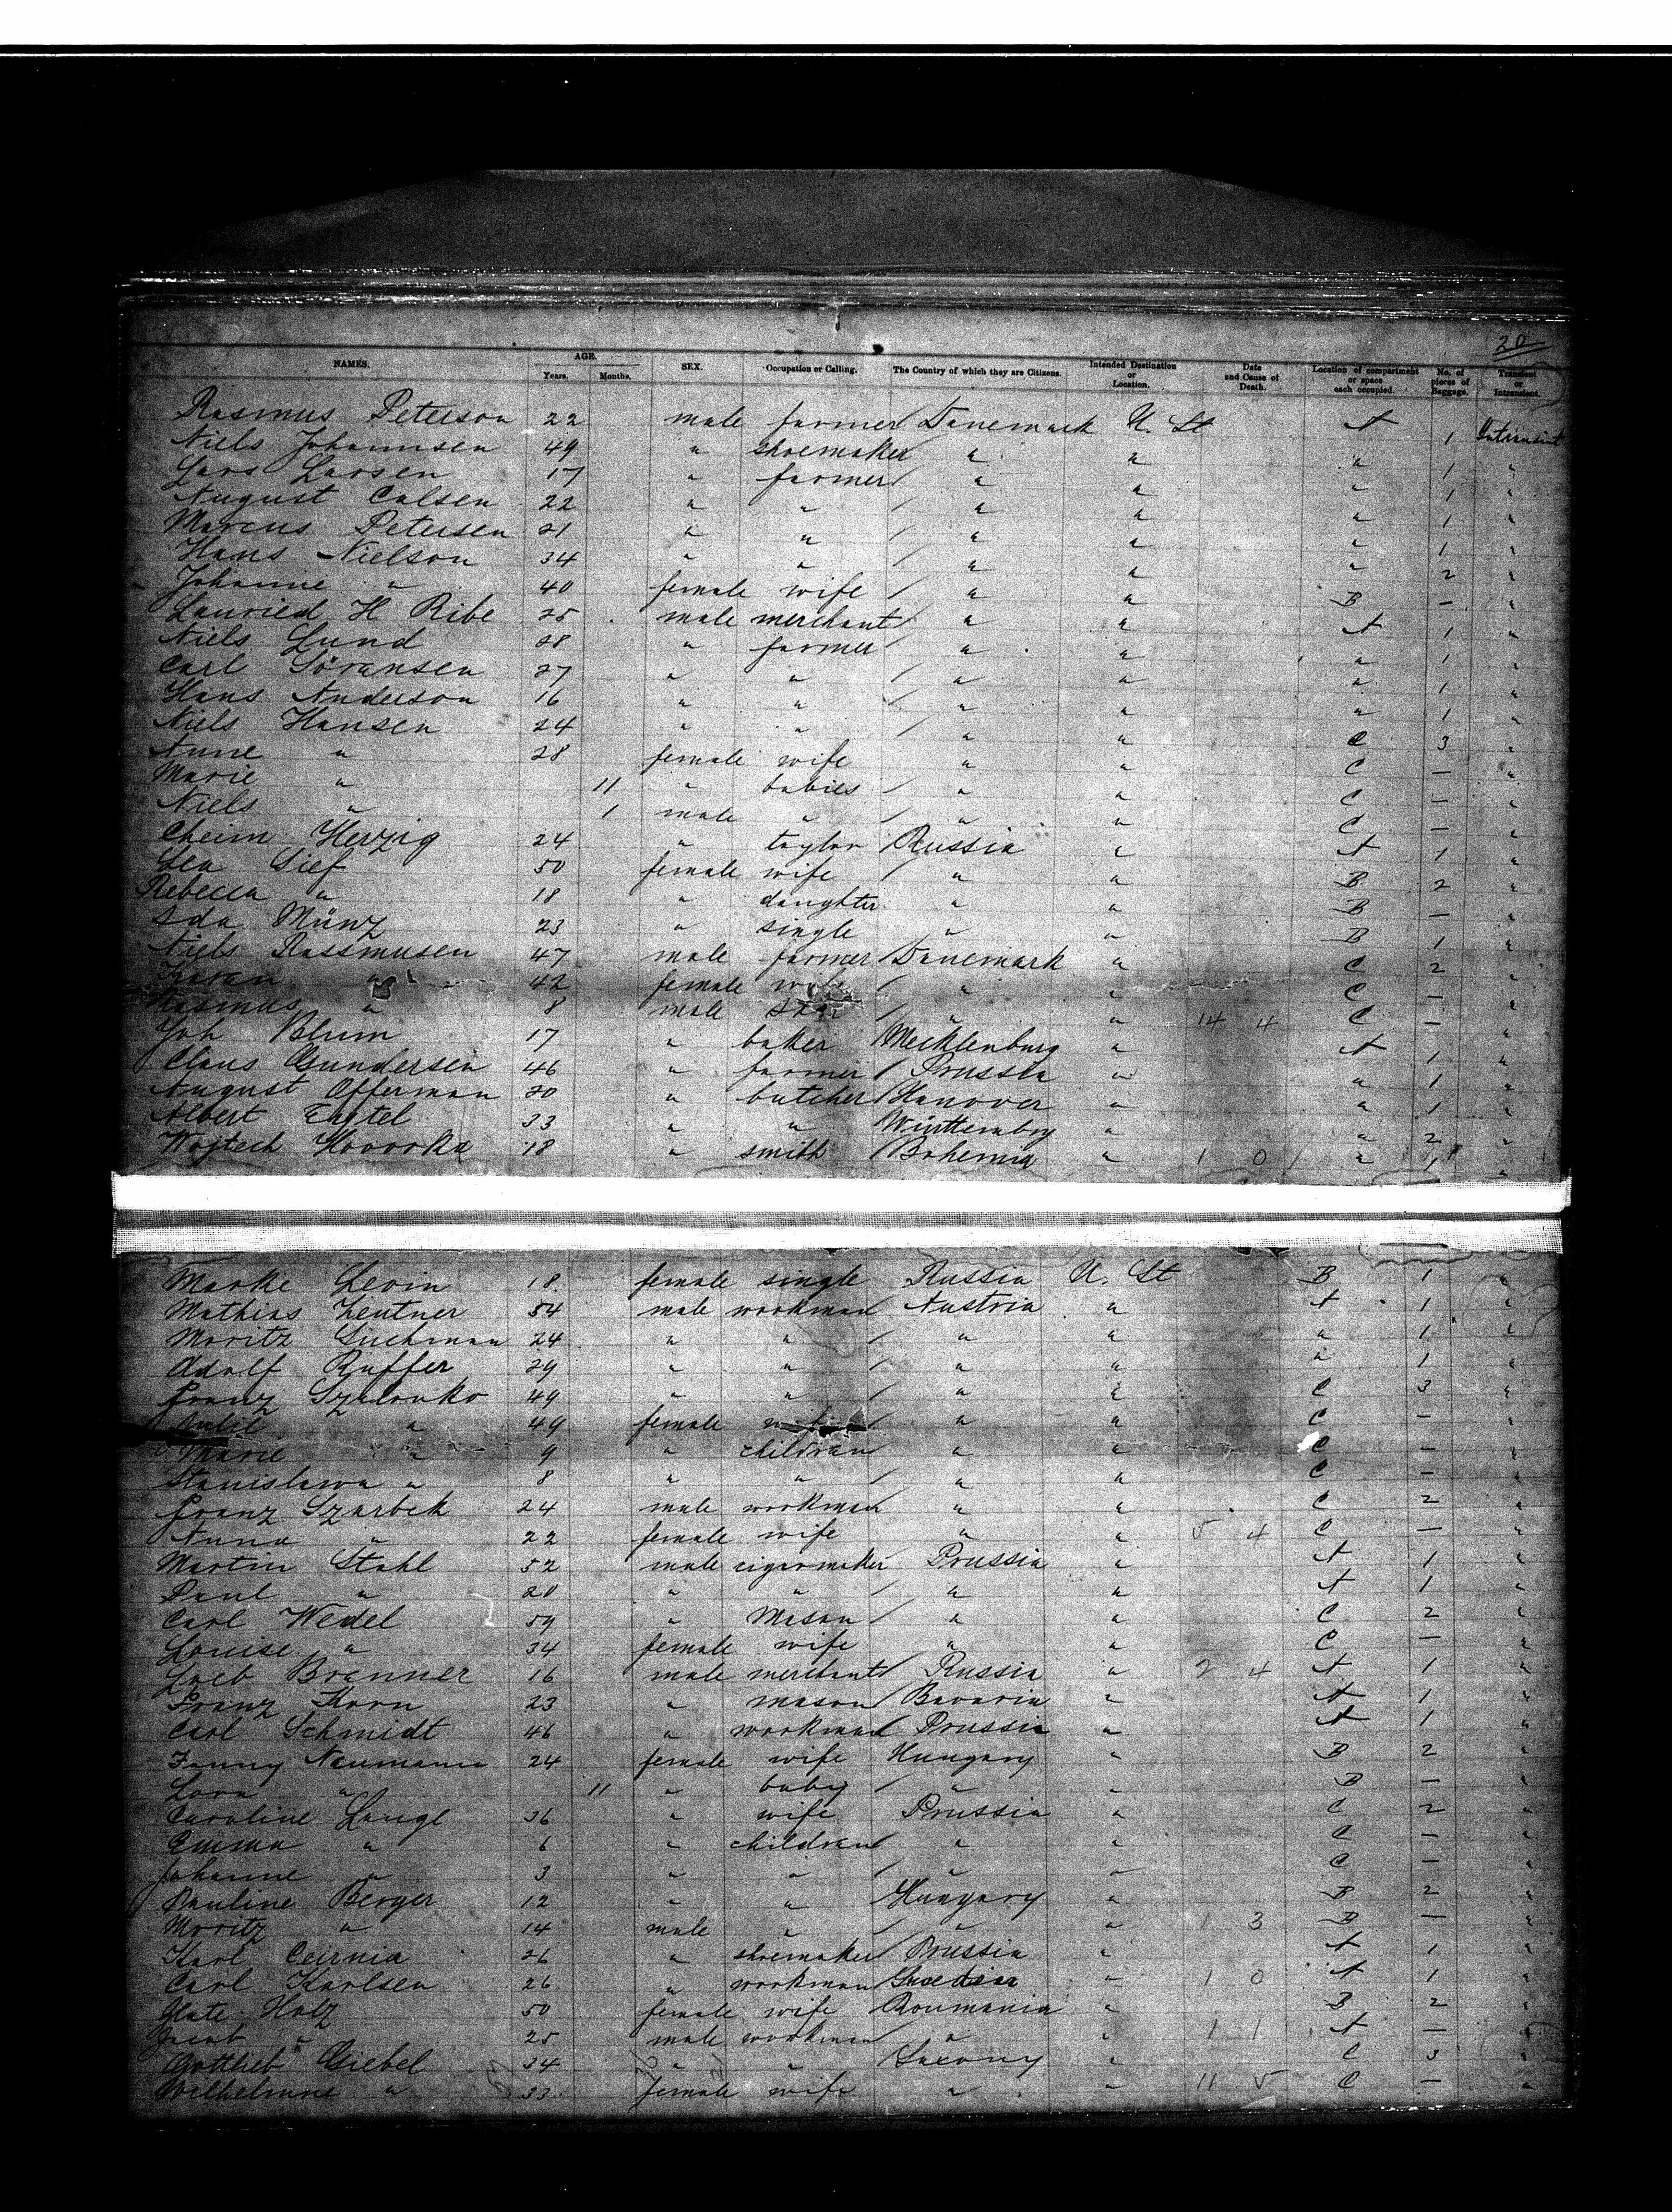 20
NAMES. AGE. Years. Months. SEX. Occupation or Calling. The Country of which they are Citizens. Intended Destination or Location. Date and Cause of Death. Location of compartment or space each occupied. No. of pieces of Baggage. Transient or Intransient.
Rasmus Peterson 22 male farmer Danemark U. St A 1 Intransient
Niels Johannsen 49 " shoemaker " " " 1 "
Lars Larsen 17 " farmer " " " 1 "
August Calsen 22 " " " " " 1 "
Marcus Petersen 21 " " " " " 1 "
Hans Nielson 34 " " " " " 2 "
Johanne " 40 female wife " " B — "
Lauried H Ribe 25 male merchant " " A 1 "
Niels Lund 28 " farmer " " " 1 "
Carl Söransen 27 " " " " " 1 "
Hans Anderson 16 " " " " " 1 "
Niels Hansen 24 " " " " C 3 "
Anne " 28 female wife " " C — "
Marie " 11 " babies " " C — "
Niels " 1 male " " " C — "
Cheim Herzig 24 " taylor Russia " A 1 "
Lea Sief 50 female wife " " B 2 "
Rebecca " 18 " daughter " " B — "
Ida Münz 23 " single " " B 1 "
Niels Rassmusen 47 male farmer Danemark " C 2 "
Karan " 42 female wife " " C — "
Rasmus " 8 male " " 14 4 C — "
Joh Blum 17 " baker Mecklenburg " A 1 "
Claus Gundersen 46 " farmer Prussia " " 1 "
August Offerman 20 " butcher Hanover " " 1 "
Albert 33 " " Württembg " " 2 "
Wojtech Hovorka 18 " smith Bohemia " 1 0 " 1 "
Marke Levin 18 female single Russia U. St B 1 "
Mathias Zentner 54 male workman Austria " A 1 "
Moritz Suchman 24 " " " " " 1 "
Adolf Ruffer 29 " " " " " 1 "
Franz Szalonko 49 " " " " C 3 "
" 49 female wife " " C — "
Marie " 9 " children " " C — "
Stanislawa " 8 " " " " C — "
Franz Szarbek 24 male workman " " C 2 "
Anna " 22 female wife " " 5 4 C — "
Martin Stahl 52 male cigarmaker Prussia " A 1 "
Paul " 20 " " " " A 1 "
Carl Wedel 59 " Mason " " C 2 "
Louise " 34 female wife " " C — "
Loeb Branner 16 male merchant Russia " 2 4 A 1 "
Franz Korn 23 " mason Bavaria " A 1 "
Carl Schmidt 46 " workman Prussia " A 1 "
Fanny Neumann 24 female wife Hungary " B 2 "
Lora " 11 " baby " " B — "
Caroline Langl 36 " wife Prussia " C 2 "
Emma " 6 " children " " C — "
Johanne " 3 " " " " C — "
Pauline Berger 12 " " Hungary " B 2 "
Moritz " 14 male " " " 1 3 B — "
Karl Czernia 26 " shoemaker Prussia " A 1 "
Carl Karlsen 26 " workman Sweden " 1 0 A 1 "
Holz 50 female wife Roumania " B 2 "
Jacob " 25 male workman " " 1 1 A — "
Gottlieb Giebel 34 " " Saxony " C 3 "
Wilhelmine " 33 female wife " " 11 5 C — "